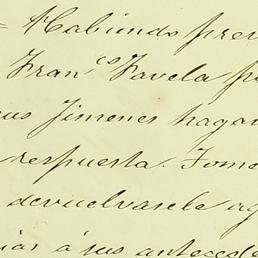 = Habiendo pres
Fran.co Favela p
us Jimenes hagan
respuesta. Tome
devuelvasele ag
ias á sus antecede